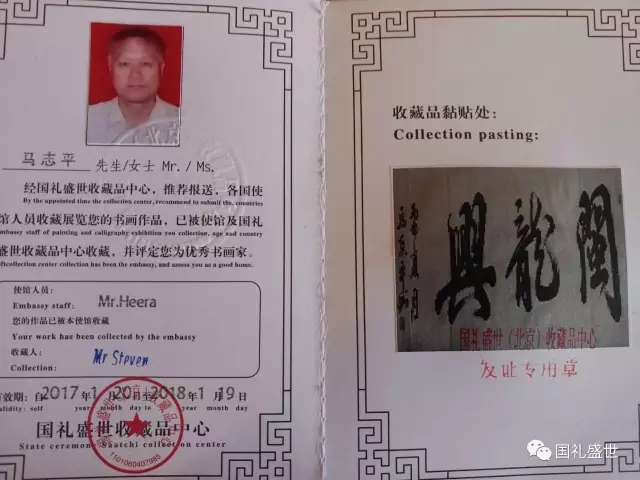 马志平 先生/女士 Mr./Ms.
经国礼盛世收藏品中心，推荐报送，各国使
By the appointed time the collection center, recommend to submit the, countries
馆人员收藏展览您的书画作品，已被使馆及国礼
embassy staff of painting and calligraphy exhibition you collection, age and country
盛世收藏品中心收藏，并评定您为优秀书画家。
collection center collection has been the embassy, and assess you as a good home.
使馆人员：
Embassy staff: Mr.Heera
您的作品已被本使馆收藏
Your work has been collected by the embassy
收藏人：
Collection: Mr Steven
有效期：自2017年1月20日至2018年1月19日
validity: self year month day to year month day
国礼盛世收藏品中心
State ceremony Saatchi collection center
1101060407985
收藏品黏贴处：
Collection pasting:
闽龙兴
国礼盛世（北京）收藏品中心
发证专用章
国礼盛世